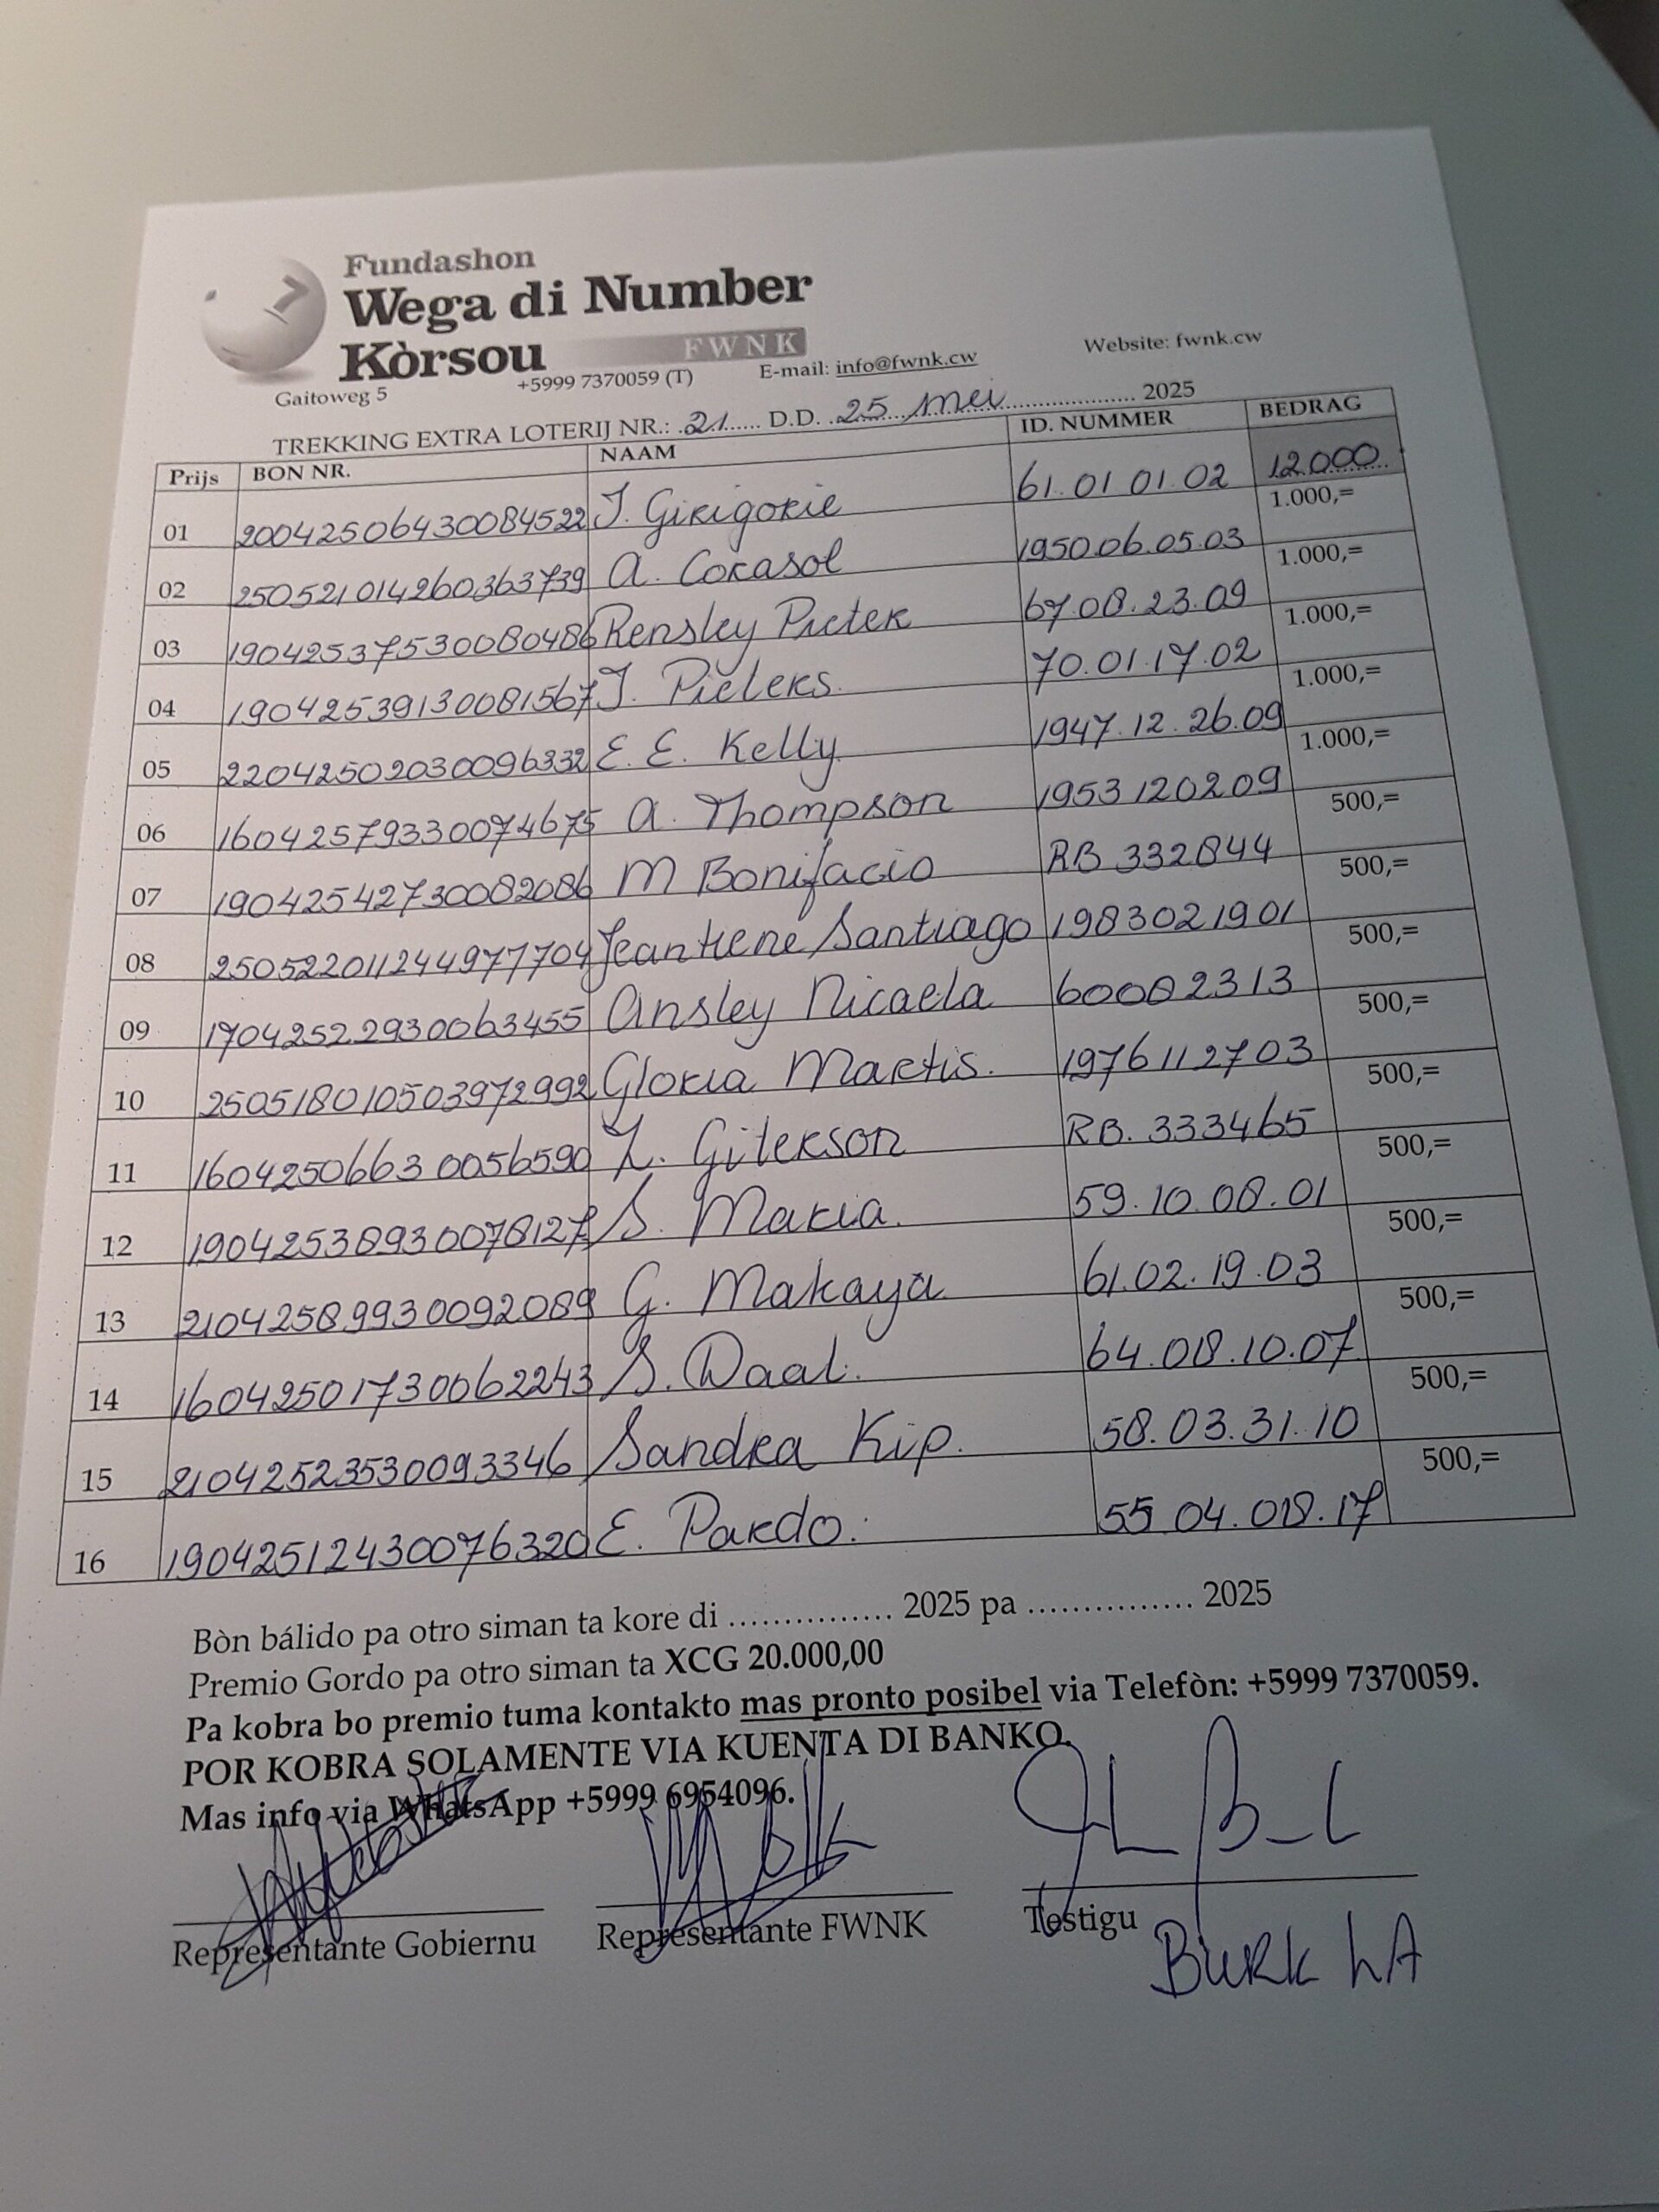 Fundashon
Wega di Number
Kòrsou FWNK
Gaitoweg 5 +5999 7370059 (T) E-mail: info@fwnk.cw Website: fwnk.cw
TREKKING EXTRA LOTERIJ NR.: .21...... D.D. ..25 mei.................... 2025
Prijs BON NR. NAAM ID. NUMMER BEDRAG
01 20042506430084522 J. Girigorie 61.01 01.02 12.000
02 250521014260363739 A. Corasol 1950.06.05.03 1.000,=
03 190425375300080486 Rensley Pieter 67.08.23.09 1.000,=
04 19042539130081567 J. Pieters. 70.01.17.02 1.000,=
05 22042502030096332 E. E. Kelly 1947.12.26.09 1.000,=
06 16042579330074675 A. Thompson 1953120209 1.000,=
07 19042542730082086 M Bonifacio RB 332844 500,=
08 250522011244977704 Jeantiene Santiago 1983021901 500,=
09 17042522930063455 Ansley Nicaela 60082313 500,=
10 250518010503972992 Gloria Martis. 1976112703 500,=
11 16042506630056590 Z. Giterson RB. 333465 500,=
12 19042538930078127 S. Maria. 59.10.08.01 500,=
13 21042589930092089 G. Makaya 61.02.19.03 500,=
14 16042501730062243 S. Daal. 64.08.10.07 500,=
15 21042523530093346 Sandra Kip. 58.03.31.10 500,=
16 19042512430076320 E. Pardo. 55.04.08.17 500,=
Bòn bálido pa otro siman ta kore di ............... 2025 pa ............... 2025
Premio Gordo pa otro siman ta XCG 20.000,00
Pa kobra bo premio tuma kontakto mas pronto posibel via Telefòn: +5999 7370059.
POR KOBRA SOLAMENTE VIA KUENTA DI BANKO.
Mas info via WhatsApp +5999 6954096.
Representante Gobiernu Representante FWNK Testigu
BURK LA